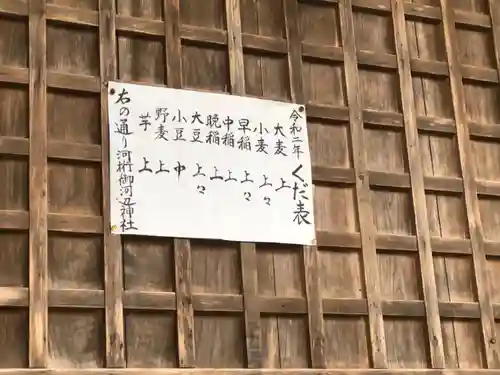 令和二年 くだ表
大麦 上
小麦 上々
早稲 上々
中稲 上
晩稲 上
大豆 上々
小豆 中
野麦 上
芋 上
右の通り 河桁御河辺神社